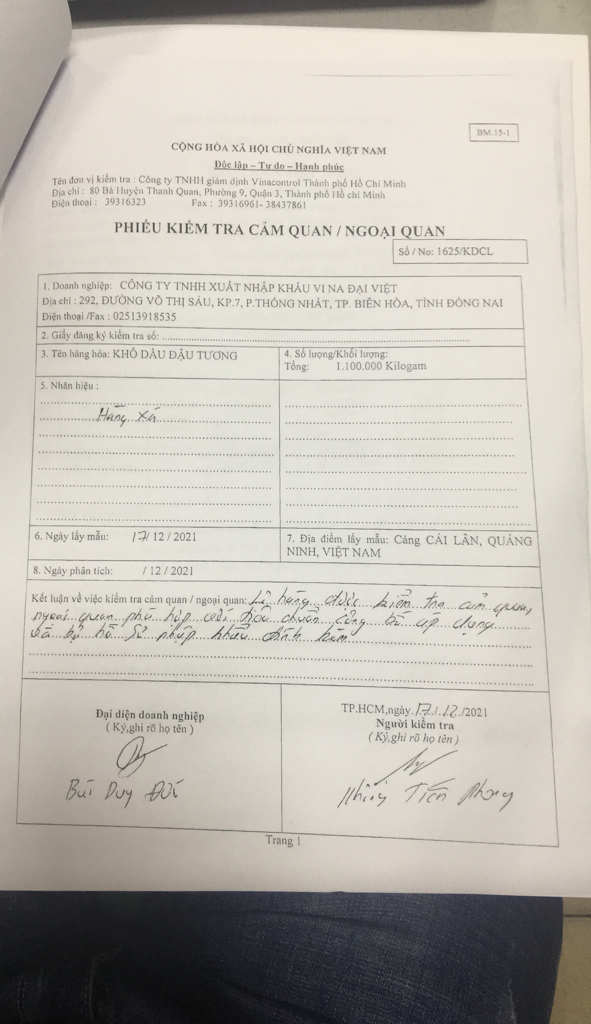 BM.15-1
CỘNG HÒA XÃ HỘI CHỦ NGHĨA VIỆT NAM
Độc lập – Tự do – Hạnh phúc
Tên đơn vị kiểm tra : Công ty TNHH giám định Vinacontrol Thành phố Hồ Chí Minh
Địa chỉ : 80 Bà Huyện Thanh Quan, Phường 9, Quận 3, Thành phố Hồ chí Minh
Điện thoại : 39316323 Fax : 39316961- 38437861
PHIẾU KIỂM TRA CẢM QUAN / NGOẠI QUAN
Số / No: 1625/KDCL
1. Doanh nghiệp: CÔNG TY TNHH XUẤT NHẬP KHẨU VI NA ĐẠI VIỆT
Địa chỉ : 292, ĐƯỜNG VÕ THỊ SÁU, KP.7, P.THỐNG NHẤT, TP. BIÊN HÒA, TỈNH ĐỒNG NAI
Điện thoại /Fax : 02513918535
2. Giấy đăng ký kiểm tra số:
3. Tên hàng hóa: KHÔ DẦU ĐẬU TƯƠNG
4. Số lượng/Khối lượng:
Tổng: 1.100.000 Kilogam
5. Nhãn hiệu :
Hàng xá
6. Ngày lấy mẫu: 17/ 12 / 2021
7. Địa điểm lấy mẫu: Cảng CÁI LÂN, QUẢNG
NINH, VIỆT NAM
8. Ngày phân tích: / 12 / 2021
Kết luận về việc kiểm tra cảm quan / ngoại quan: Lô hàng được kiểm tra cảm quan,
ngoại quan phù hợp với tiêu chuẩn công bố áp dụng
và bộ hồ sơ nhập khẩu đính kèm
Đại diện doanh nghiệp
( Ký,ghi rõ họ tên )
Bùi Duy Đức
TP.HCM,ngày 17/12/2021
Người kiểm tra
( Ký,ghi rõ họ tên )
Tiến Phong
Trang 1